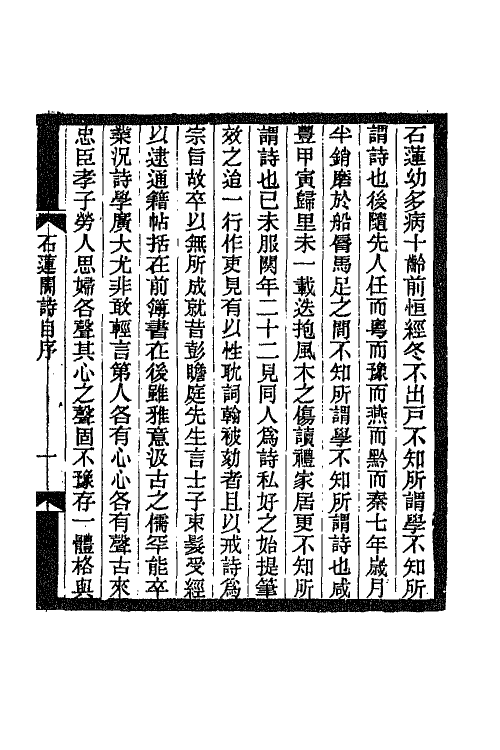 石蓮幼多病十齡前恒經冬不出戸不知所謂學不知所
謂詩也後隨先人任而粵而豫而燕而黔而秦七年歲月
半銷磨於船脣馬足之間不知所謂學不知所謂詩也咸
豐甲寅歸里未一載迭抱風木之傷讀禮家居更不知所
謂詩也己未服闋年二十二見同人爲詩私好之始提筆
效之迨一行作吏見有以性耽詞翰被劾者且以戒詩爲
宗旨故卒以無所成就昔彭瞻庭先生言士子束髮受經
以逮通籍帖括在前簿書在後雖雅意汲古之儒罕能卒
業況詩學廣大尤非敢輕言第人各有心心各有聲古來
忠臣孝子勞人思婦各聲其心之聲固不豫存一體格與
石蓮闇詩自序
一